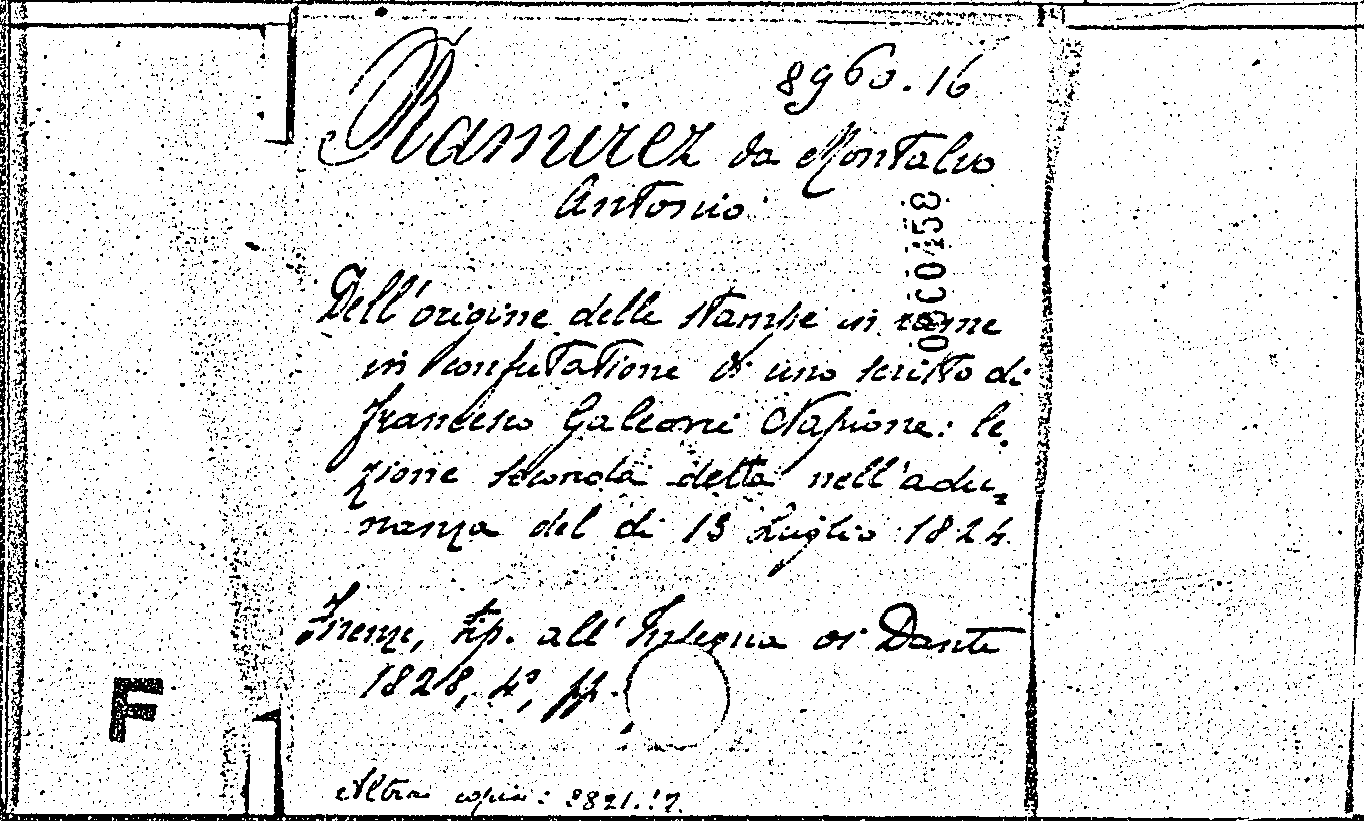 8960.16
Ramirez da Montalvo
Antonio
Dell'origine delle stampe in rame
in confutazione di uno scritto di
Francesco Galeani Napione: le
zione seconda detta nell'adu=
nanza del di 13 Luglio 1824.
Firenze, tip. all'Insegna di Dante
1828, 4°, pp.
Altra copia:
F